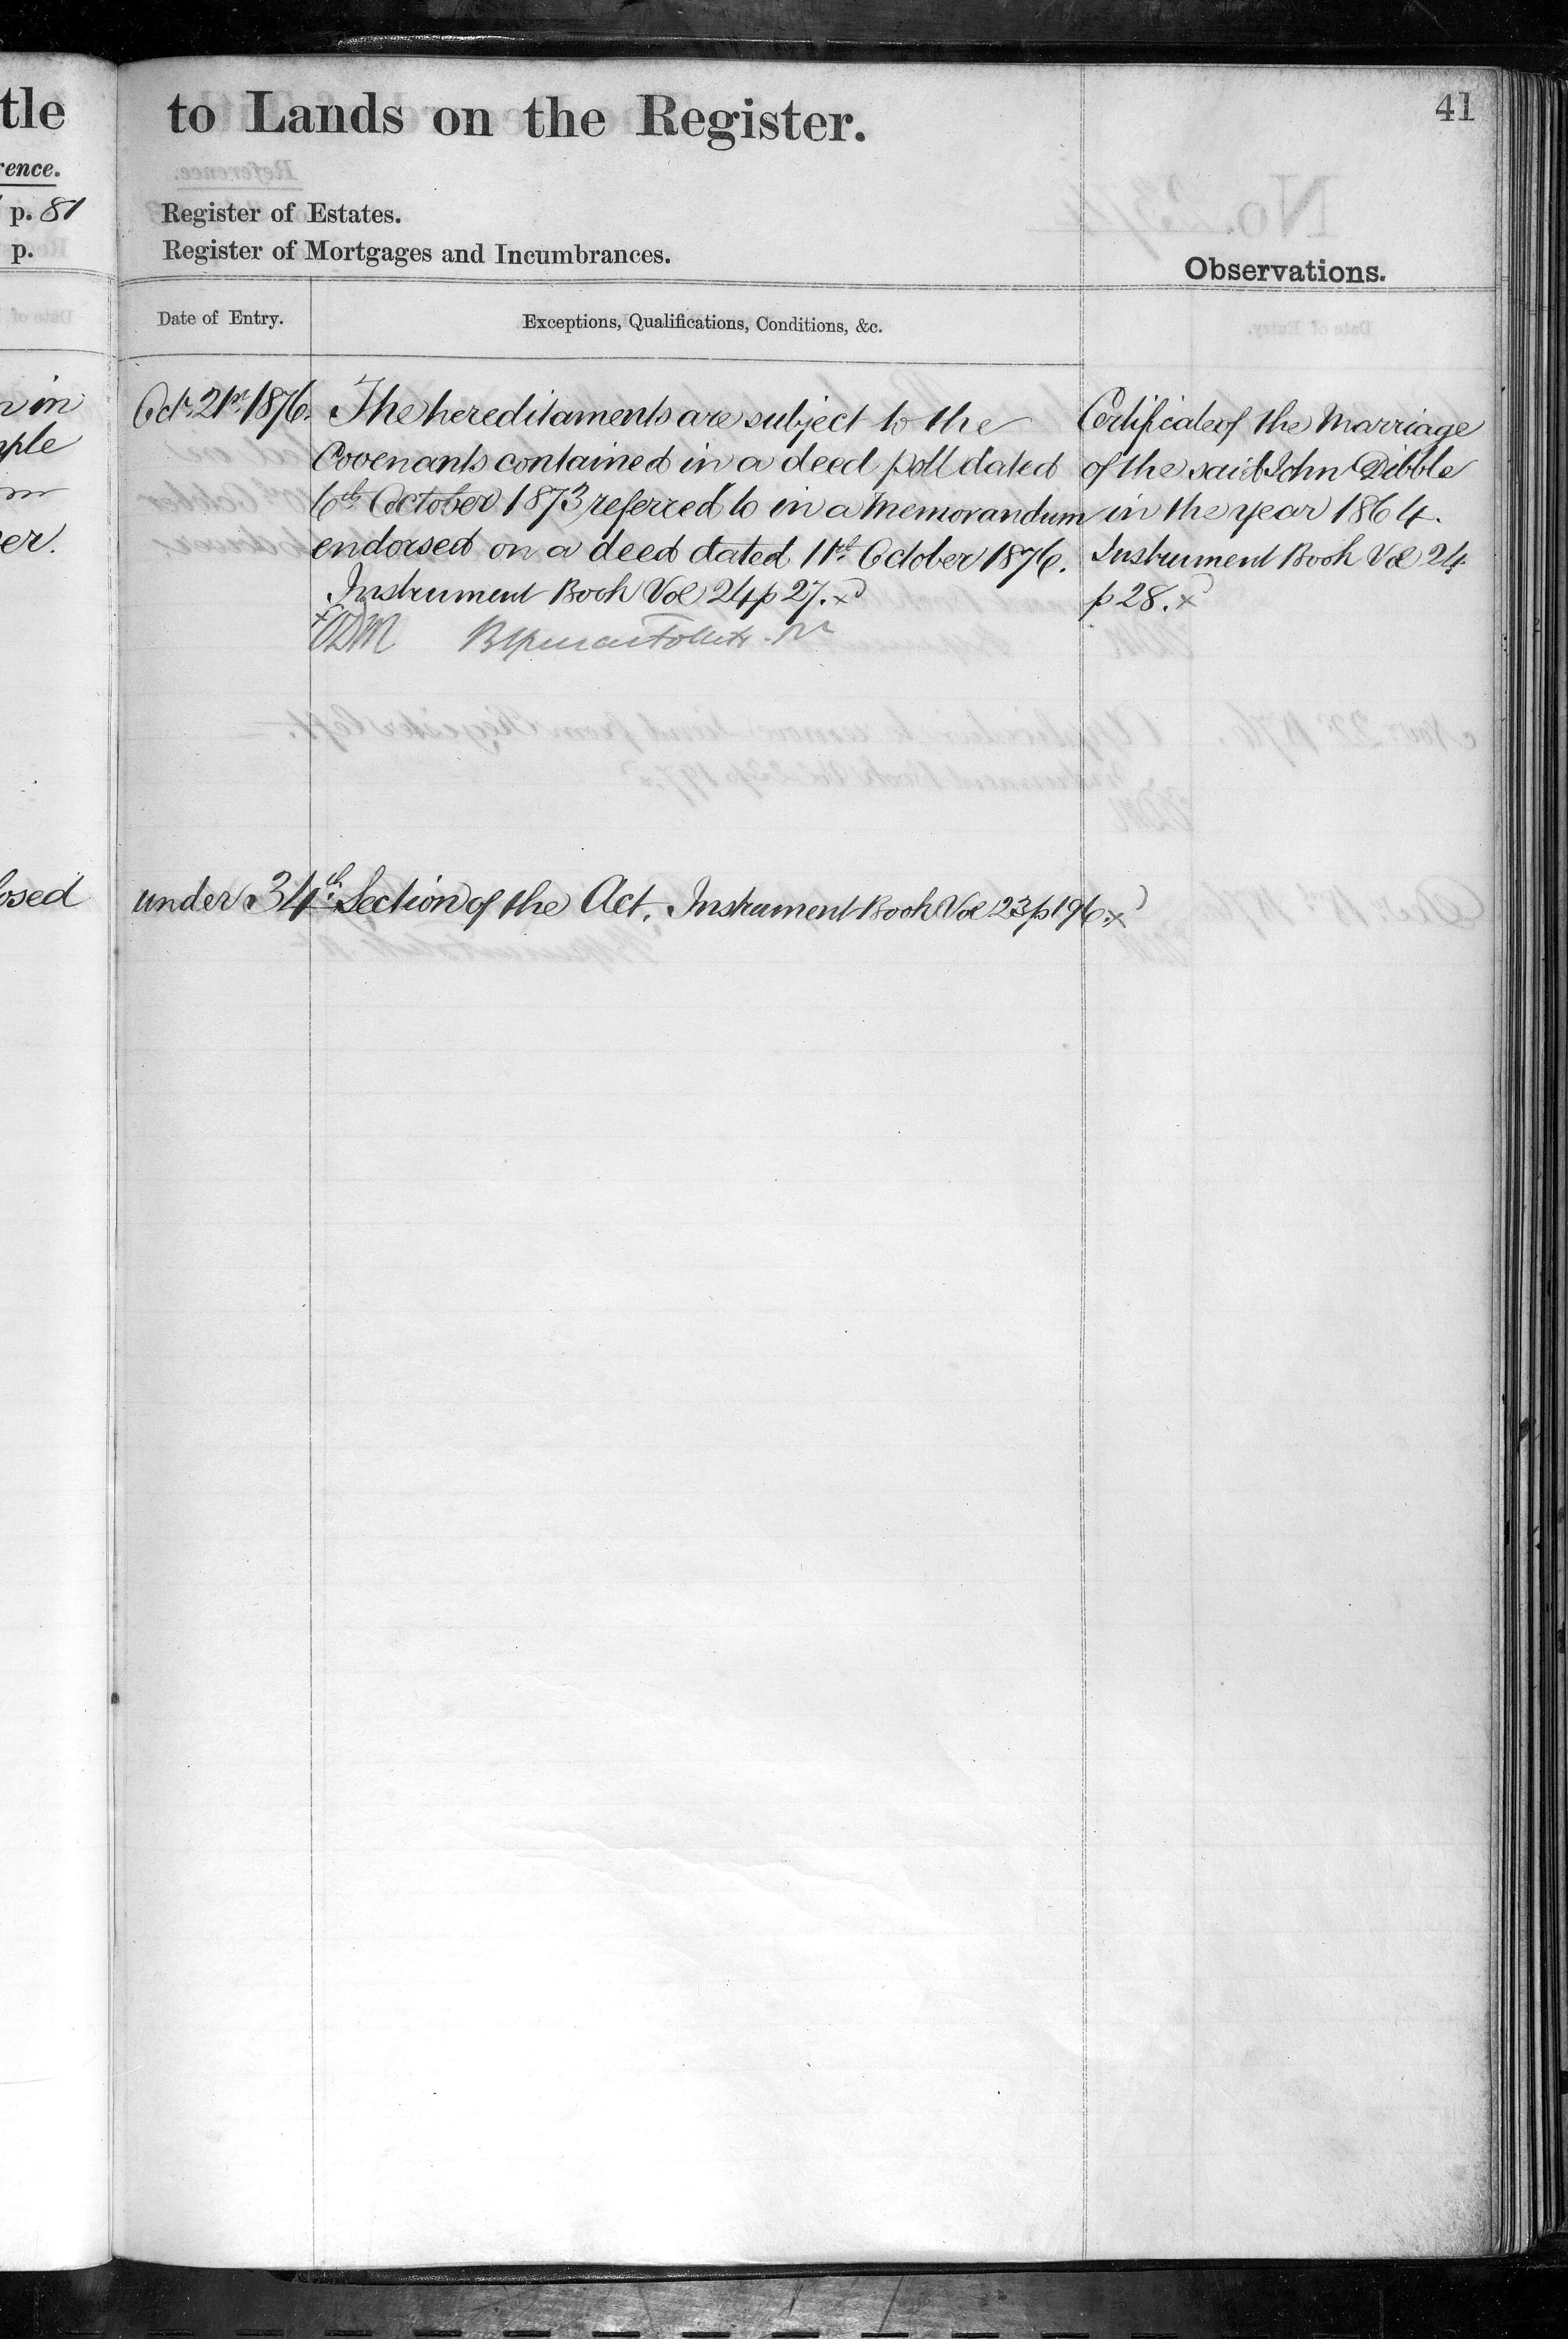 tle
rence.
p. 81
p.
in
mple
er.
losed
to Lands on the Register.
41
Register of Estates.
Register of Mortgages and Incumbrances.
Observations.
Date of Entry.
Exceptions, Qualifications, Conditions, &c.
Octr. 21st 1876.
The hereditaments are subject to the
Covenants contained in a deed poll dated
6th October 1873 referred to in a Memorandum
endorsed on a deed dated 11th October 1876.
Instrument Book Vol 24 p 27. x
Certificate of the Marriage
of the said John Dibble
in the year 1864.
Instrument Book Vol 24
p 28. x
under 34th Section of the Act. Instrument Book Vol 23 p 196. x